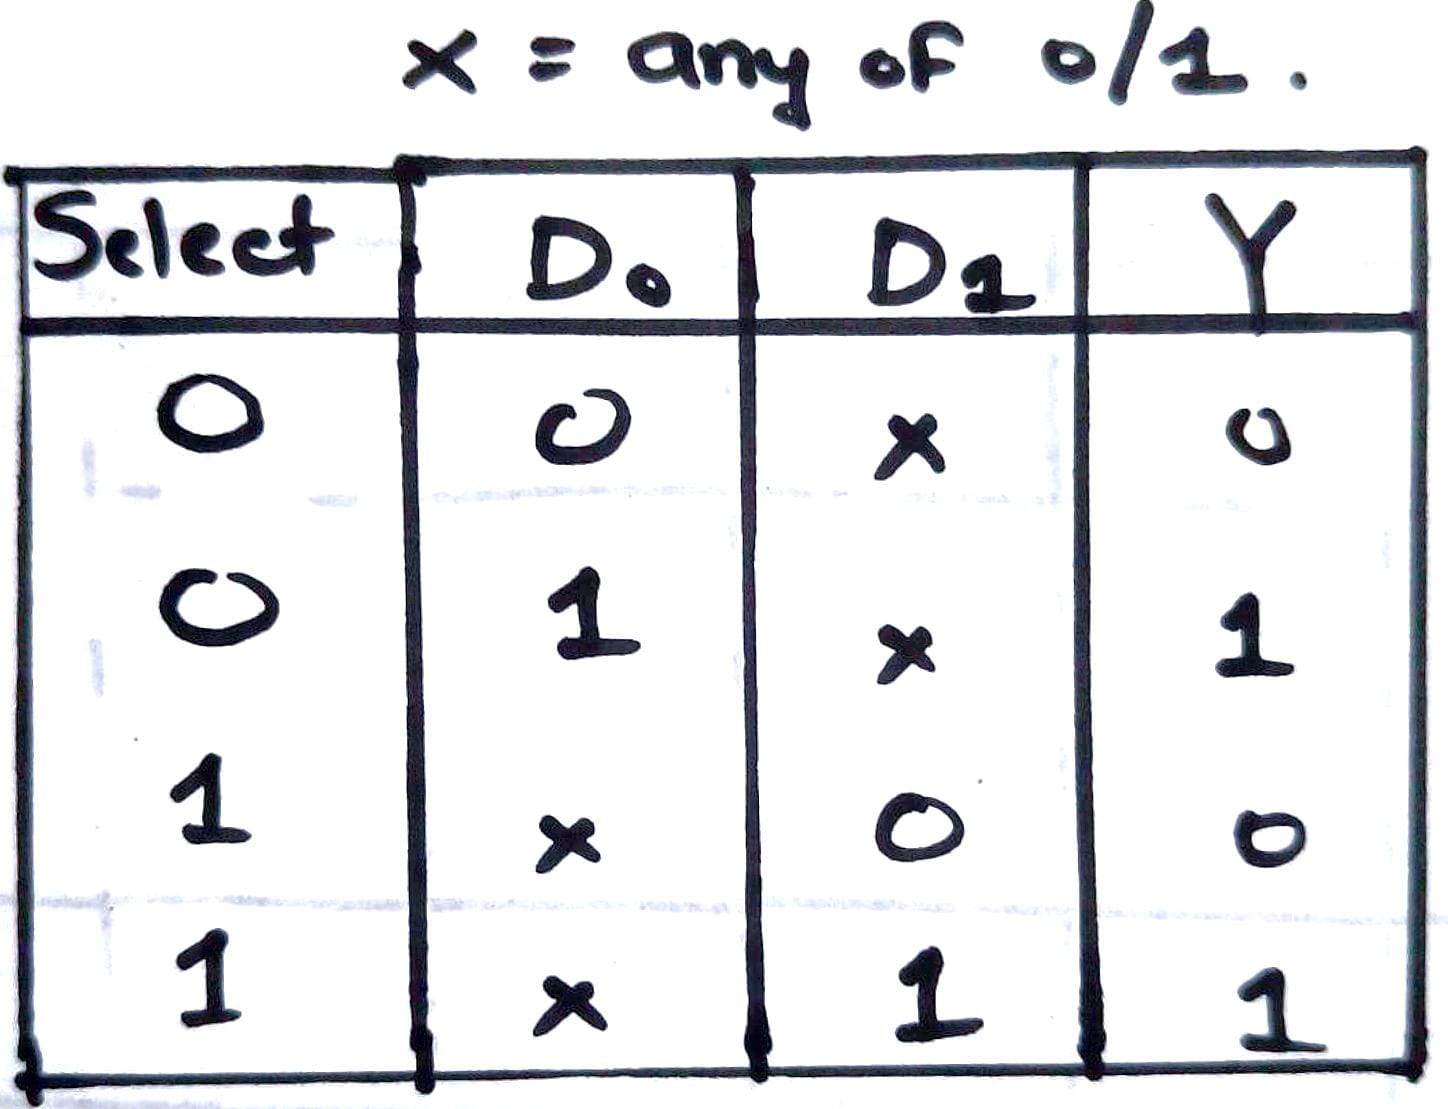 x = any of 0/1.
Select D₀ D₁ Y
0 0 x 0
0 1 x 1
1 x 0 0
1 x 1 1